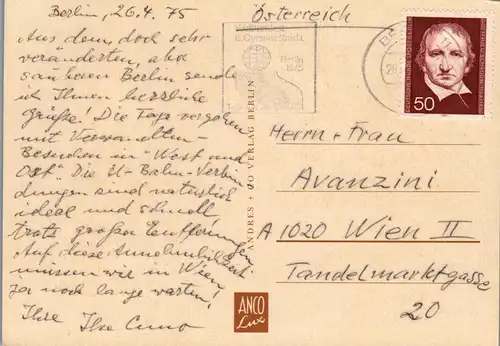 Berlin, 26.4.75
Aus dem, doch sehr
veränderten, aber
sauberen Berlin sende
ich Ihnen herzliche
Grüße! Die Tage vergehen
mit Verwandten-
Besuchen in "West und
Ost". Die U-Bahn-Verbin
dungen sind natürlich
ideal und schnell,
trotz großen Entfernungen.
Auf diese Annehmlichkeit
müssen wir in Wien
ja noch lange warten!
Ihre Ilse Cuno
Österreich
Gymnaestrada
Berlin
1975
50
ANDRES + CO VERLAG BERLIN
ANCO
Lux
Herrn + Frau
Avanzini
A 1020 Wien II
Tandelmarktgasse
20